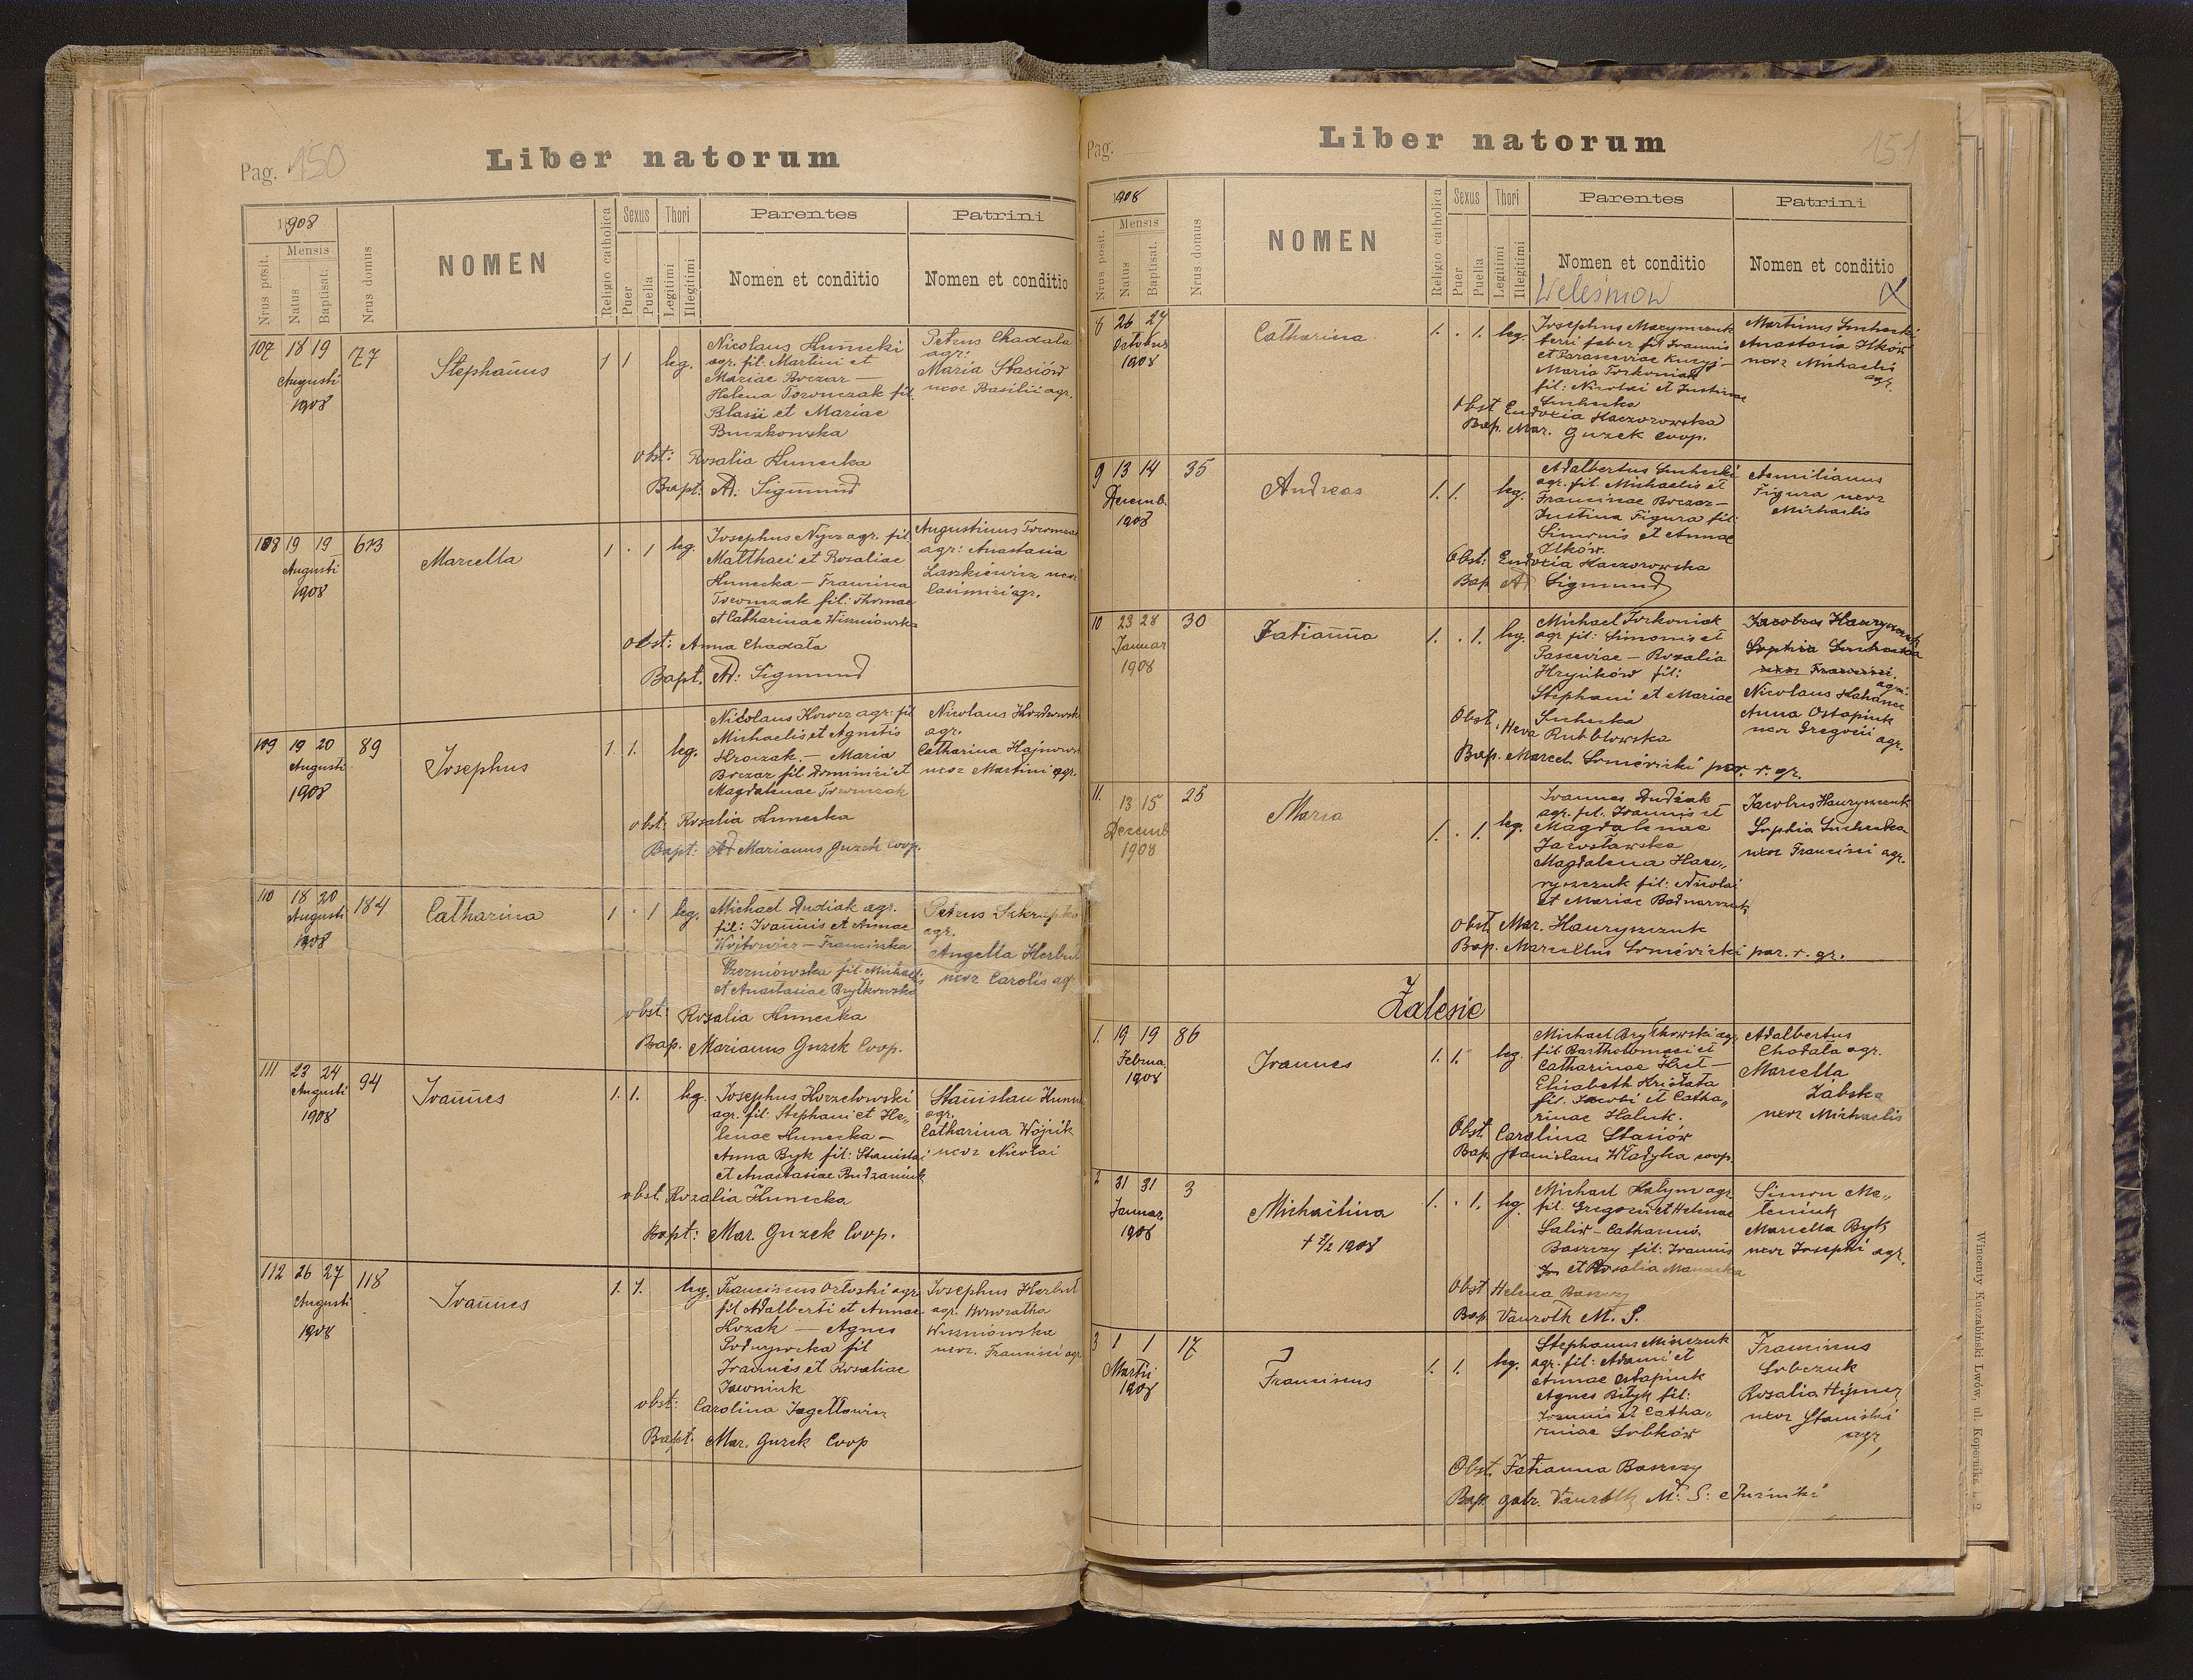 Pag. 150
Liber natorum
1908
Nrus posit.
Mensis
Natus
Baptisat.
Nrus domus
NOMEN
Religio catholica
Sexus
Puer
Puella
Thori
Legitimi
Illegitimi
Parentes
Nomen et conditio
Patrini
Nomen et conditio
107 18 19 77
Augusti
1908
Stephanus
1 1 leg.
Nicolaus Humecki
agr. fil. Martini et
Mariae Boczar —
Helena Toronczak fil.
Blasii et Mariae
Buczkowska
Petrus Chadala
agr:
Maria Stasiów
uxor Basilii agr.
obst: Rosalia Humecka
Bapt: Ad: Sigmund
108 19 19 613
Augusti
1908
Marcella
1 . 1 leg.
Josephus Nycz agr. fil.
Matthaei et Rosaliae
Humecka — Francisca
Toronczak fil: Thomae
et Catharinae Wiszniowska
Augustinus
agr: Anastasia
Laszkiewicz uxor
Casimiri agr.
obst: Anna Chadala
Bapt. Ad: Sigmund
109 19 20 89
Augusti
1908
Josephus
1. 1. leg.
Nicolaus agr: fil
Michaelis et Agnetis
— Maria
Boczar fil Dominici et
Magdalenae
Nicolaus
agr.
Catharina
uxor Martini agr.
obst: Rosalia Humecka
Bapt: Marianus Guzek Coop.
110 18 20 184
Augusti
1908
Catharina
1 . 1 leg.
Michael Dudiak agr.
fil: Joannis et Annae
Wojtowicz — Franciszka
Czerniowska fil. Michaelis
et Anastasiae Brytkowska
Petrus
agr.
Angella Herbut
uxor Carolis agr
obst: Rosalia Humecka
Bap. Marianus Guzek Coop.
111 23 24 94
Augusti
1908
Joannes
1. 1. leg.
Josephus Horzelowski
agr. fil: Stephani et He„
lenae Humecka —
Anna Byk fil: Stanislai
et Anastasiae Budzaniuk
Stanislau
agr.
Catharina Wójcik
uxor Nicolai
obst. Rozalia Humecka
Bapt: Mar. Guzek Coop.
112 26 27 118
Augusti
1908
Joannes
1. 1. leg.
Franciscus Orłoski agr
fil Adalberti et Annae
Kozak — Agnes
fil
Joannis et Rosaliae
Josephus Herbut
agr. Honoratha
Wiszniowska
uxor. Francisci agr
obst: Carolina Jagellowicz
Bapt. Mar. Guzek Coop
Pag. 151
Liber natorum
1908
Nrus posit.
Mensis
Natus
Baptisat.
Nrus domus
NOMEN
Religio catholica
Sexus
Puer
Puella
Thori
Legitimi
Illegitimi
Parentes
Nomen et conditio
Patrini
Nomen et conditio
Weleśniow
8 26 27
October
1908
Catharina
1. . 1. leg.
Josephus
ferri faber fil Joannis
et Parasceviae
Maria Torkoniak
fil: Nicolai et Justinae
Suchecka
Martinus Suchecki
Anastasia Ilków
uxor Michaelis
agr.
Obst Eudoxia Kaczorowska
Bap. Mar. Guzek Coop.
9 13 14 35
Decemb.
1908
Andreas
1. 1. leg.
Adalbertus Suchecki
agr. fil. Michaelis et
Franciscae Boczar —
Justina Figura fil:
Simonis et Annae
Ilków.
Aemilianus
Figura uxor
Michaelis
Obst: Eudoxia Kaczorowska
Bap Ad Sigmund
10 23 28 30
Januar
1908
Tatianna
1. . 1. leg.
Michael Torkoniak
agr fil: Simonis et
Pasceviae — Rozalia
Hryńków fil:
Stephani et Mariae
Suchecka
Jacobus Hawryszczuk
Sophia Suchecka
uxor Francisci
agri.
Nicolaus
Anna Ostapiuk
uxor Gregorii agr.
Obst: Heva Rubblowska
Bap. Marcel. par. r. gr.
11. 13 15 25
Decemb
1908
Maria
1. . 1. leg.
Joannes Dudiak
agr. fil. Joannis et
Magdalenae
Jarosławska
Magdalena Haw„
ryszczuk fil: Nicolai
et Mariae Bodnarczuk
Jacobus Hawryszczuk
Sophia Suchecka
uxor Francisci agr.
obst. Mar. Hawryszczuk
Bap. Marcellus par. r. gr.
Zalesie
1. 19 19 86
Februa.
1908
Joannes
1. 1. leg.
Michael Brytkowski agr.
fil Bartholomaei et
Catharinae
Elisabeth
fil. Jacobi et Catha„
rinae Haluk.
Adalbertus
Chodala agr.
Marcella
Zabska
uxor Michaelis
Obst. Carolina Stasiów
Bap. Stanislaus Władyka coop.
2 31 31 3
Januar.
1908
Michaëlina
† 2/2 1908
1. . 1. leg.
Michael Hałym agr
fil. Gregorii et Helenae
Baszczy fil: Joannis
et Rosalia
Simon Me„
leniuk
Marcella Byk
uxor Josephi agr.
Obst Helena Baszczy
Bap. Vauroth M. S.
3 1 1 17
Martii
1908
Franciscus
1. 1. leg.
Stephanus Minczuk
agr. fil: Adami et
Annae Ostapiuk
Agnes Bilyk fil:
Joannis et Catha„
rinae Sobków
Franciscus
Sobczuk
Rosalia
uxor Stanislai
agr,
Obst. Tatianna Baszczy
Bap. gabr. Vauroth M: S:
Wincenty Kuczabiński Lwów, ul. Kopernika l. 2.